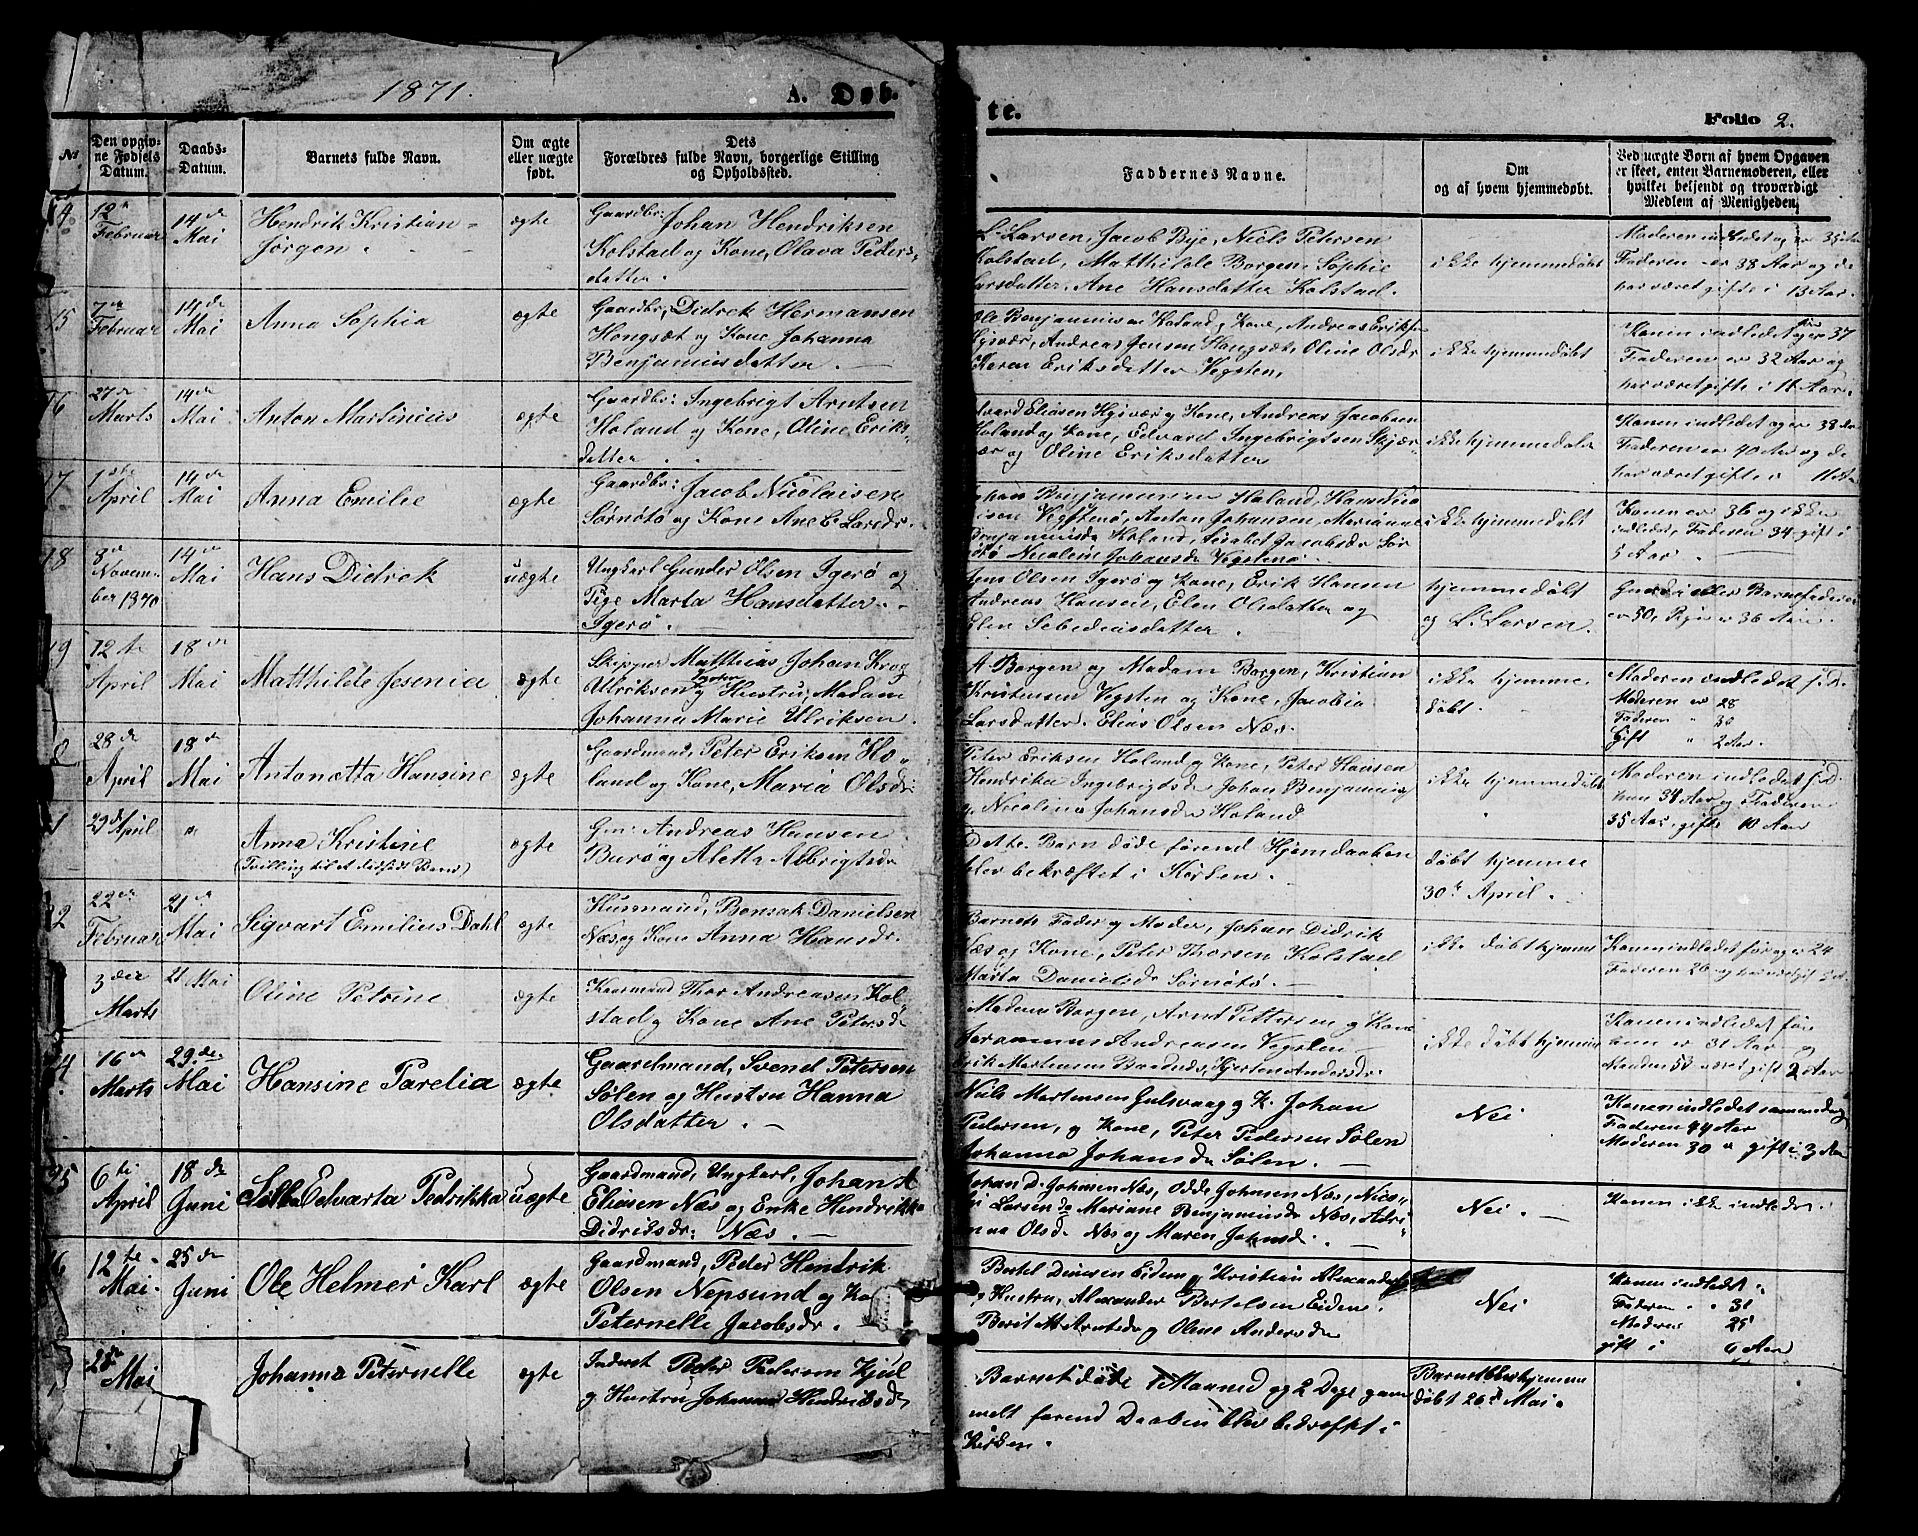 1871.
A. Døb-
te.
Folio 2.
No
Den opgiv-
ne Fødsels
Datum.
Daabs-
Datum.
Barnets fulde Navn.
Om ægte
eller uægte
født.
Dets
Forældres fulde Navn, borgerlige Stilling
og Opholdssted.
Faddernes Navne.
Om
og af hvem hjemmedøbt.
Ved uægte Børn af hvem Opgaven
er skeet, enten Barnemoderen, eller
hvilket bekjendt og troværdigt
Medlem af Menigheden.
14.
12te
Februar
14de
Mai
Hendrik Kristian
Jørgen.
ægte
Gaardbr: Johan Hendriksen
Kolstad og Kone, Olava Peders-
datter.
L. Larsen, Jacob Bye, Niels Petersen
Kolstad, Matthilde Borgen, Sophie
Larsdatter, Ane Hansdatter Kolstad.
ikke hjemmedøbt
Moderen indledet og er 35 Aar
Faderen er 38 Aar og de
har været gifte i 13 Aar.
15
7de
Februar
14de
Mai
Anna Sophia
ægte
Gaardbr: Didrek Hermansen
Hongsæt og Kone Johanna
Benjaminsdatter.
Ole Benjaminsen Holand og Kone, Andreas Eriks
Andreas Jensen Hongsæt, Oline Olsdr
Karen Eriksdatter Vegsten,
ikke hjemmedøbt
Konen indledet og er 37
Faderen er 32 Aar og
har været gifte i 11 Aar.
16
27de
Marts
14de
Mai
Anton Martinius
ægte
Gaardbr: Ingebrigt Arntsen
Holand og Kone, Oline Eriks-
datter.
Edvard Eliasen og Kone, Andreas Jacobsen
Holand og Kone, Edvard Ingebrigtsen Skjær-
vær og Oline Eriksdatter
ikke hjemmedøbt
Konen indledet og er 38 Aar
Faderen er 40 Aar og de
har været gifte i 11 Aar
17
1ste
April
14de
Mai
Anna Emilie
ægte
Gaardbr: Jacob Nicolaisen
Sørnøtø og Kone Ane E. Larsdr.
Johan Benjaminsen Holand, Hans Nico
laisen Vegstenø, Anton Johansen, Marianne
Benjaminsdr Holand, Jacobsdr Sør
Nicoline Johansdr Vegstenø.
ikke hjemmedøbt
Konen er 36 og ikke
indledet, Faderen 34 gift i
5 Aar.
18
8de
Novem-
ber 1870
14de
Mai
Hans Didrek
uægte
Ungkarl Gunder Olsen Igerø og
Pige Marta Hansdatter
Igerø.
Jens Olsen Igerø og Kone, Erik Hansen
Andreas Hansen, Elen Olsdatter og
Elen
hjemmedøbt
og L. Larsen.
eller Barnefaderen
er 30, Pige er 36 Aar
19
12te
April
18de
Mai
Matthilde Jesenia
ægte
Skipper Matthias Johan Krog
Ulriksen og Hustru, Madam
Johanna Marie Ulriksen.
A Borgen og Madam Borgen, Kristian
Kristensen Vegsten og Kone, Jacobia
Larsdatter. Elias Olsen Næs.
ikke hjemme
døbt.
Moderen indledet f.D.
Moderen er 28
Faderen " 30
Gift " 2 Aar.
2
28de
April
18de
Mai
Antonetta Hansine
ægte
Gaardmand, Peter Eriksen Ho-
land og Kone, Maria Olsdr:
Peter Eriksen Holand og Kone, Peter Hansen
Hendrika Ingebrigtsdr Johan Benjamins
og Nicolina Johansdr Holand
ikke hjemmedøbt
Moderen indledet f.D.
hun 34 Aar og Faderen
35 Aar, gifte 10 Aar
29de April
"
Anna Kristine
(Tvilling til et dødfødt Barn)
ægte
Gm: Andreas Hansen
Burø og Aletta Albrigtsdr
Dette Barn døde førend Hjemdaaben
blev bekræftet i Kirken.
døbt hjemme
30te April.
22
22de
Februar
21de
Mai
Sigvart Emilius Dahl
ægte
Husmand, Bensak Danielsen
Næs og Kone Anna Hansdr.
Barnets Fader og Moder, Johan Didrik
Næs og Kone, Peter Thorsen Kolstad
Marta Danielsdr Sørnøtø.
ikke døbt hjemme
Konen indledet før og er 24
Faderen 26
3die
Marts
21 Mai
Oline Petrine
ægte
Thor Andreasen Kol
stad og Kone Ane Petersdr
Madam Borgen, Arnt Pettersen og Kone
Andreasen Vegsten
Erik Mortensen Andersdr.
ikke døbt hjemme
Konen indledet før
hun er 31 Aar og
Manden 53 været gift 2 Aar
24
16de
Marts
29de
Mai
Hansine Parelia
ægte
Gaardmand, Svend Petersen
Sølen og Hustru Hanna
Olsdatter.
Niels Mortensen Gulsvaag og K. Johan
Pedersen, og Kone, Peter Pedersen Sølen
Johanna Johansdr Sølen.
Nei
Konen indledet sammedag
Faderen 44 Aar
Moderen 30 " gift i 3 Aar
25
6te
April
18de
Juni
Edvarta Pedrikka
uægte
Gaardmand, Ungkarl, Johan A
Eliasen Næs og Enke Hendrikke
Didriksdr: Næs.
Johan D. Johansen Næs, Odde Johansen Næs, Nico-
lai Larsen og Mariane Benjaminsdr Næs, Adri-
na Olsd. Næs og Maren Johansd.
Nei.
Konen ikke indledet.
12te
Mai
25de
Juni
Ole Helmer Karl
ægte
Gaardmand, Peder Hendrik
Olsen Nepsund og Ko
Peternelle Jacobsdr.
Bertel Dinesen Eidem, Kristian Alexanders
og Hustru, Alexander Bertelsen Eidem.
Berit M Arntsdr og Oline Andersdr
Nei
Konen indledet
Faderen " 31
Moderen 25
gift i 4 Aar
28de
Mai
Johanna Peternelle
ægte
Inderst Peder Pedersen
og Hustru Johanna Hendriksdr
Barnet døde 1 Maaned og 2 Dage gam
melt førend Daaben blev bekræftet i
Kirken.
Barnet blev hjemme
døbt 26de Mai.